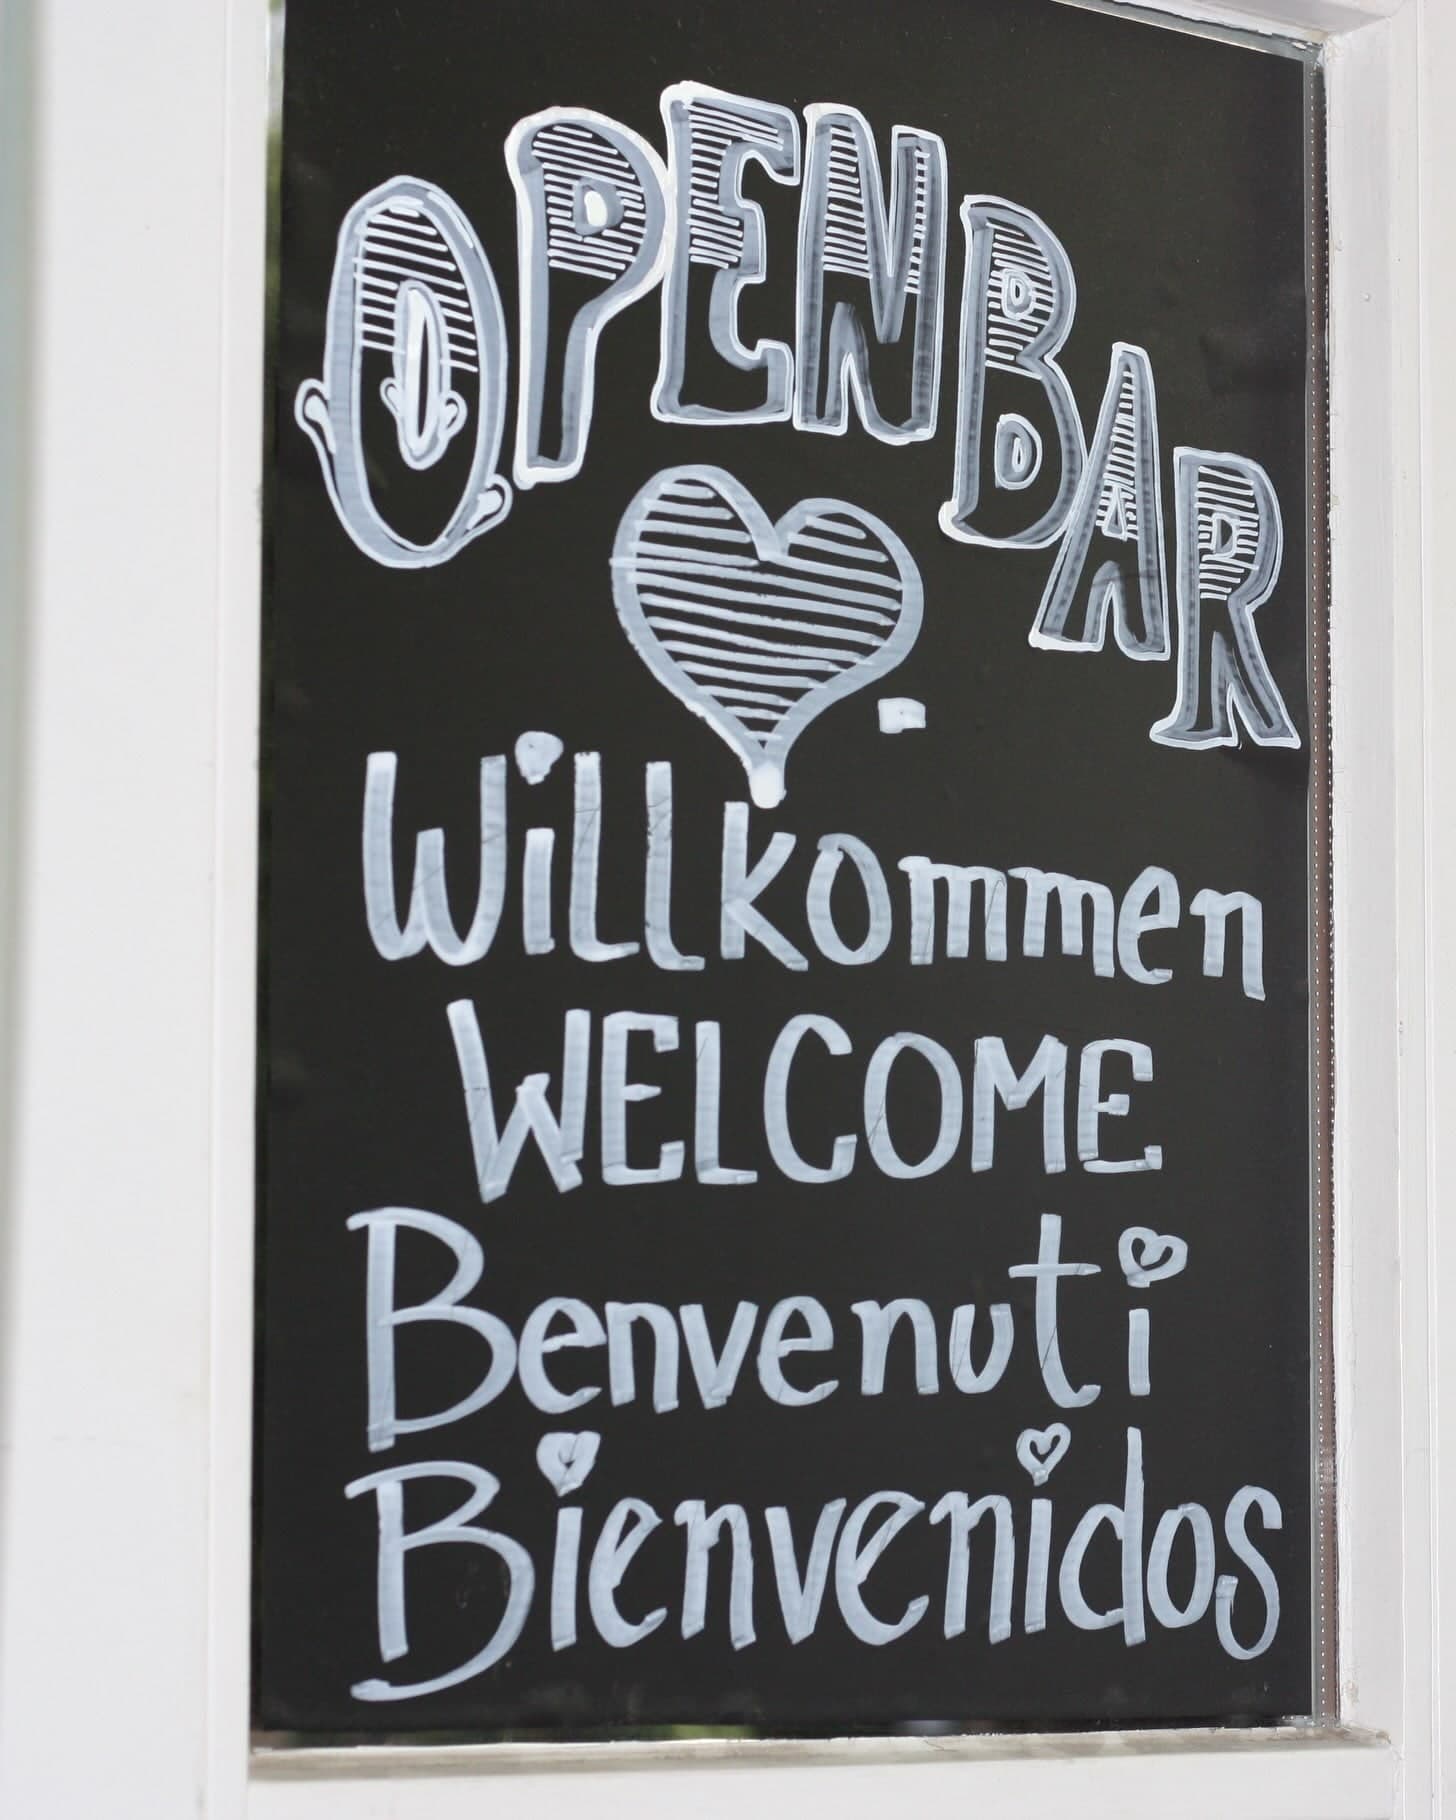 OPEN BAR
Willkommen
WELCOME
Benvenuti
Bienvenidos